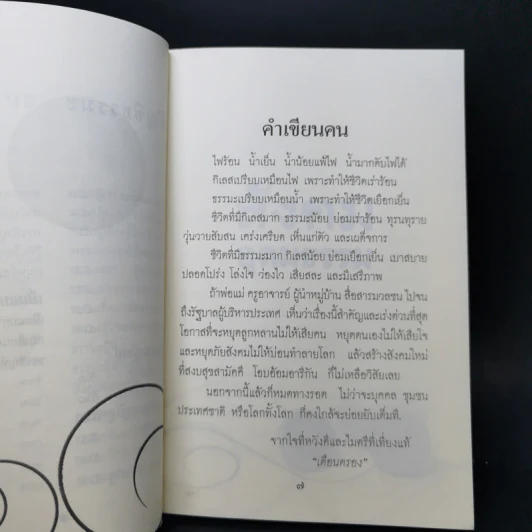 คำเขียนคน
ไฟร้อน น้ำเย็น น้ำน้อยแพ้ไฟ น้ำมากดับไฟได้
กิเลสเปรียบเหมือนไฟ เพราะทำให้ชีวิตเร่าร้อน
ธรรมะเปรียบเหมือนน้ำ เพราะทำให้ชีวิตเยือกเย็น
ชีวิตที่มีกิเลสมาก ธรรมะน้อย ย่อมเร่าร้อน ทุรนทุราย
วุ่นวายสับสน เคร่งเครียด เห็นแก่ตัว และเผด็จการ
ชีวิตที่มีธรรมะมาก กิเลสน้อย ย่อมเยือกเย็น เบาสบาย
ปลอดโปร่ง โล่งใจ ว่องไว เสียสละ และมีเสรีภาพ
ถ้าพ่อแม่ ครูอาจารย์ ผู้นำหมู่บ้าน สื่อสารมวลชน ไปจน
ถึงรัฐบาลผู้บริหารประเทศ เห็นว่าเรื่องนี้สำคัญและเร่งด่วนที่สุด
โอกาสที่จะหยุดลูกหลานไม่ให้เสียคน หยุดตนเองไม่ให้เสียใจ
และหยุดภัยสังคมไม่ให้บ่อนทำลายโลก แล้วสร้างสังคมใหม่
ที่สงบสุขสามัคคี โอบอ้อมอารีกัน ก็ไม่เหลือวิสัยเลย
นอกจากนี้แล้วก็หมดทางรอด ไม่ว่าจะบุคคล ชุมชน
ประเทศชาติ หรือโลกทั้งโลก ก็คงใกล้จะย่อยยับเต็มที
จากใจที่หวังดีและไมตรีที่เที่ยงแท้
"เตือนครอง"
๗